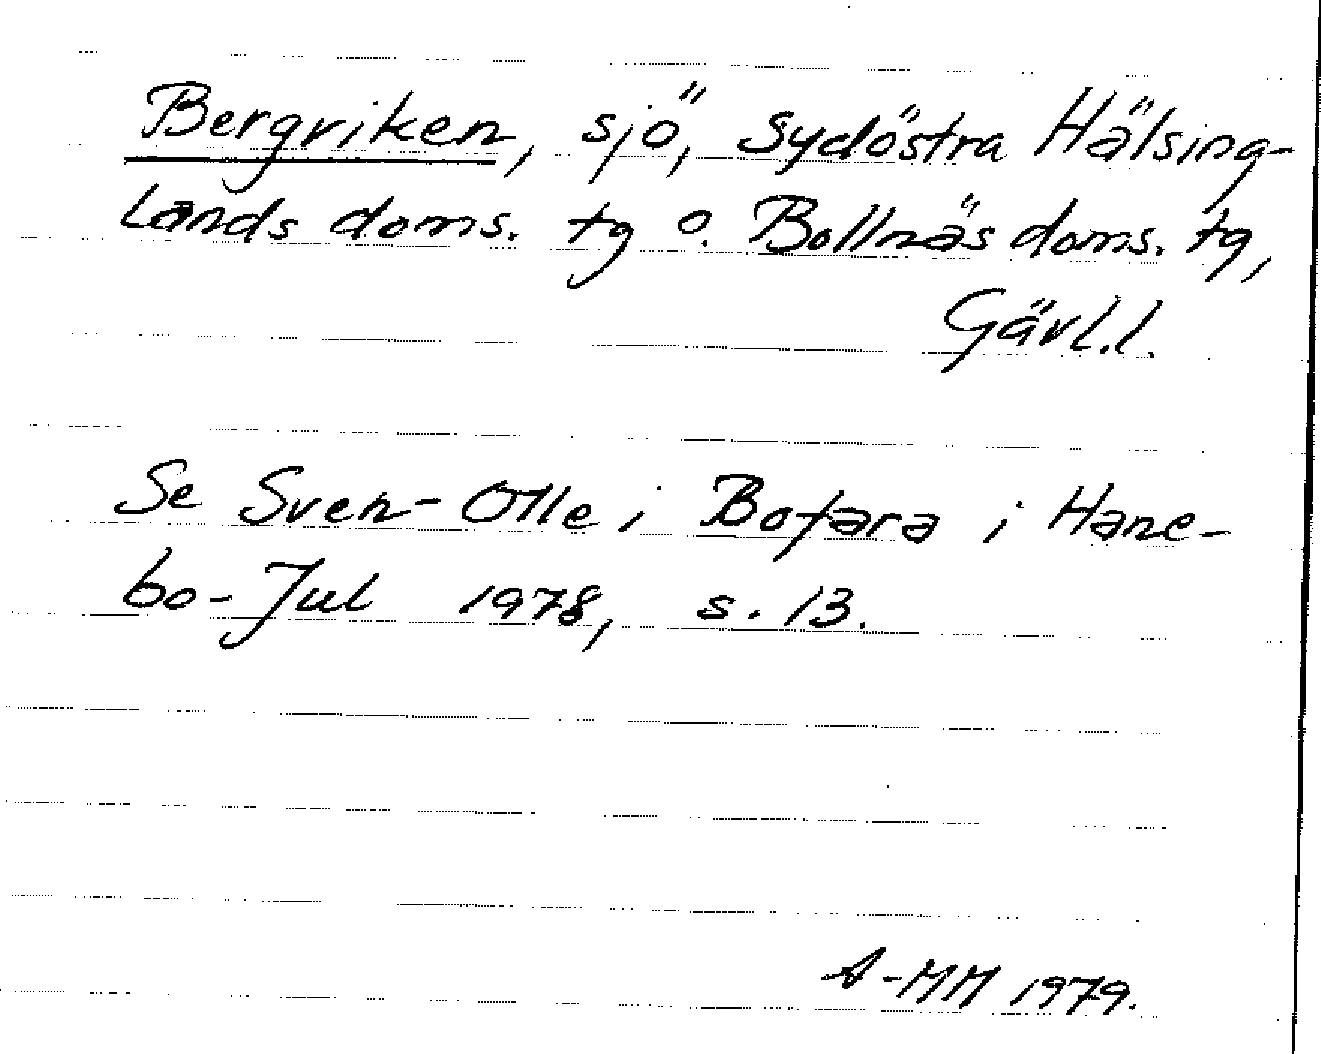 Bergviken, sjö, Sydöstra Hälsing-
lands doms. tg o. Bollnäs doms. tg,
Gävl.l.
Se Sven-Olle i Bofara i Hane-
bo-Jul 1978, s. 13.
A-MM 1979.